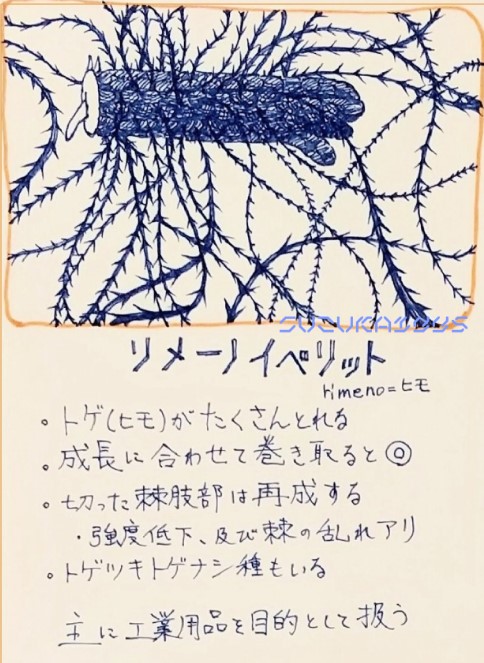 SUZUKAIDYS
リメーノイベリット
rimeno=ヒモ
。トゲ(ヒモ)がたくさんとれる
。成長に合わせて巻き取ると◎
。切った棘肢部は再成する
・強度低下、及び棘の乱れアリ
。トゲツキトゲナシ種もいる
主に工業用品を目的として扱う